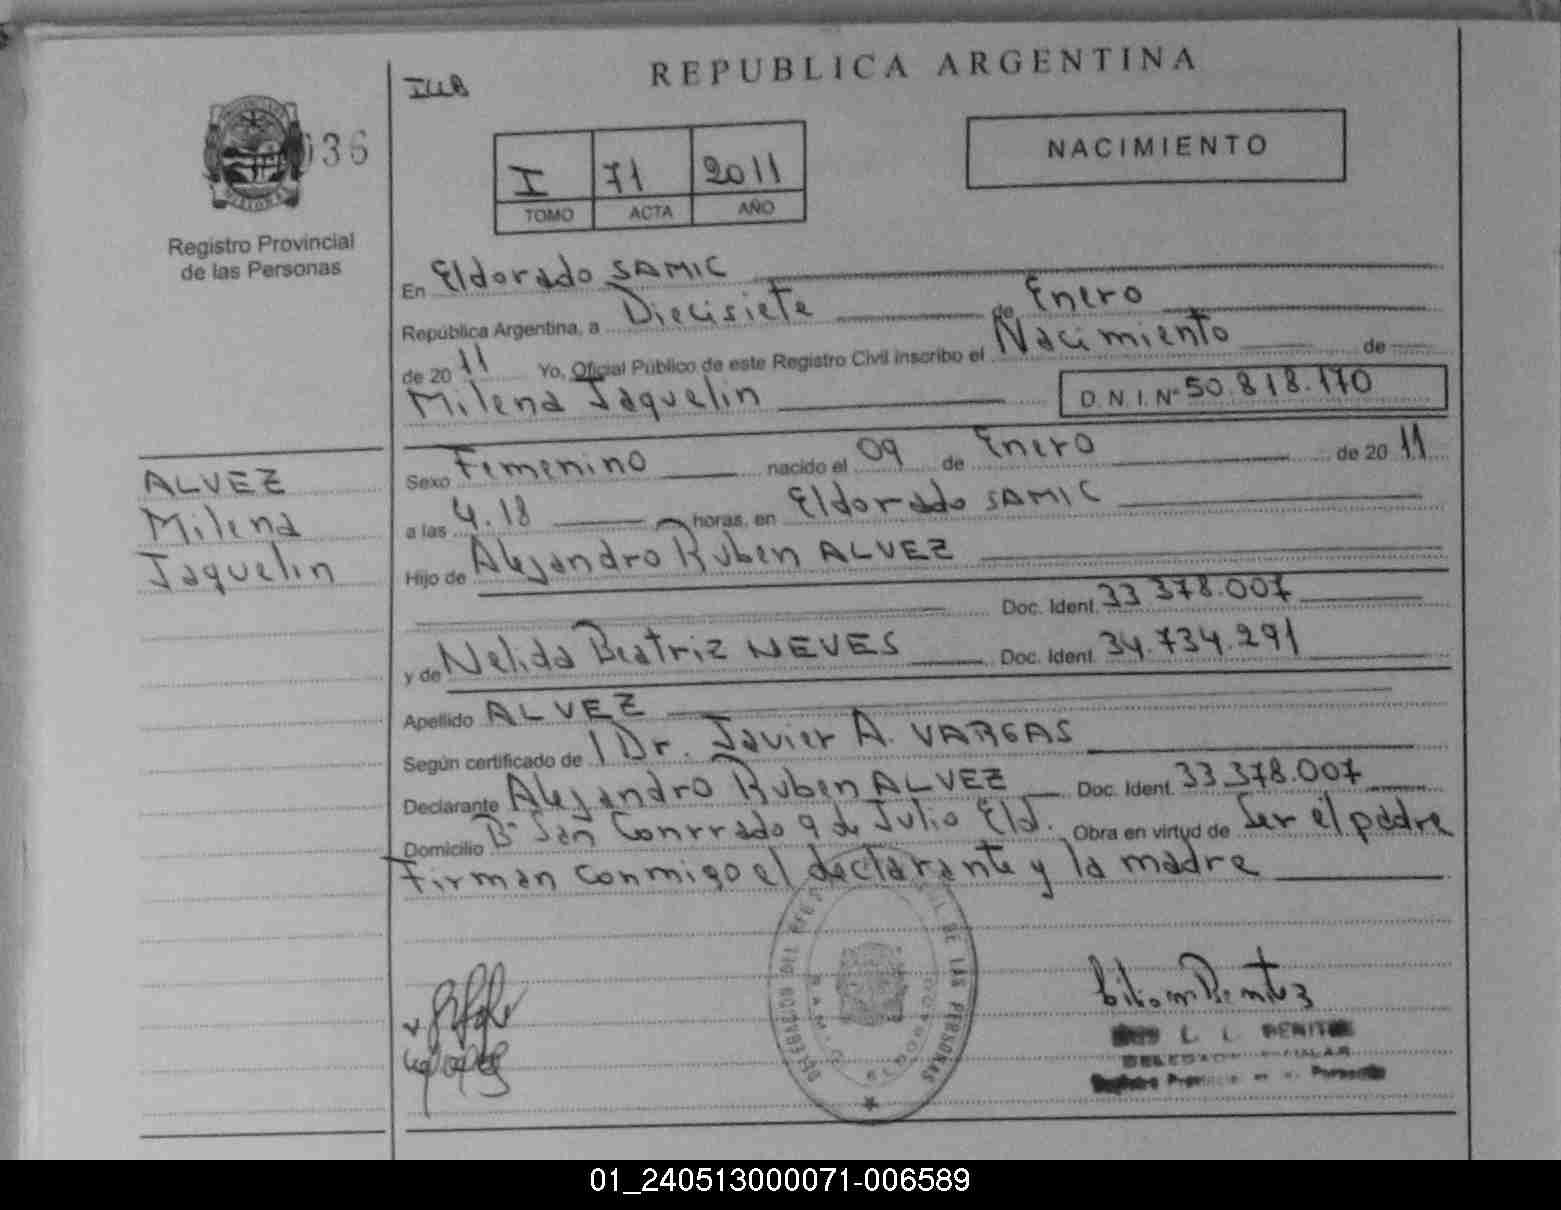 REPUBLICA ARGENTINA
036
I 71 2011
TOMO ACTA AÑO
NACIMIENTO
Registro Provincial
de las Personas
En Eldorado SAMIC
República Argentina, a Diecisiete de Enero
de 20 11 Yo, Oficial Público de este Registro Civil inscribo el Nacimiento de
Milena Jaquelin D.N.I. Nº 50.818.170
Sexo Femenino nacido el 09 de Enero de 20 11
a las 4.18 horas, en Eldorado SAMIC
Hijo de Alejandro Ruben ALVEZ
Doc. Ident. 33 378.007
y de Nelida Beatriz NEVES Doc. Ident. 34.734.291
Apellido ALVEZ
Según certificado de l Dr. Javier A. VARGAS
Declarante Alejandro Ruben ALVEZ Doc. Ident. 33 378.007
Domicilio Bº San Conrrado 9 de Julio Eld. Obra en virtud de Ser el padre
Firman conmigo el declarante y la madre
ALVEZ
Milena
Jaquelin
DELEGACION DEL DE LAS PERSONAS
ELDORADO
L. BENITEZ
01_240513000071-006589